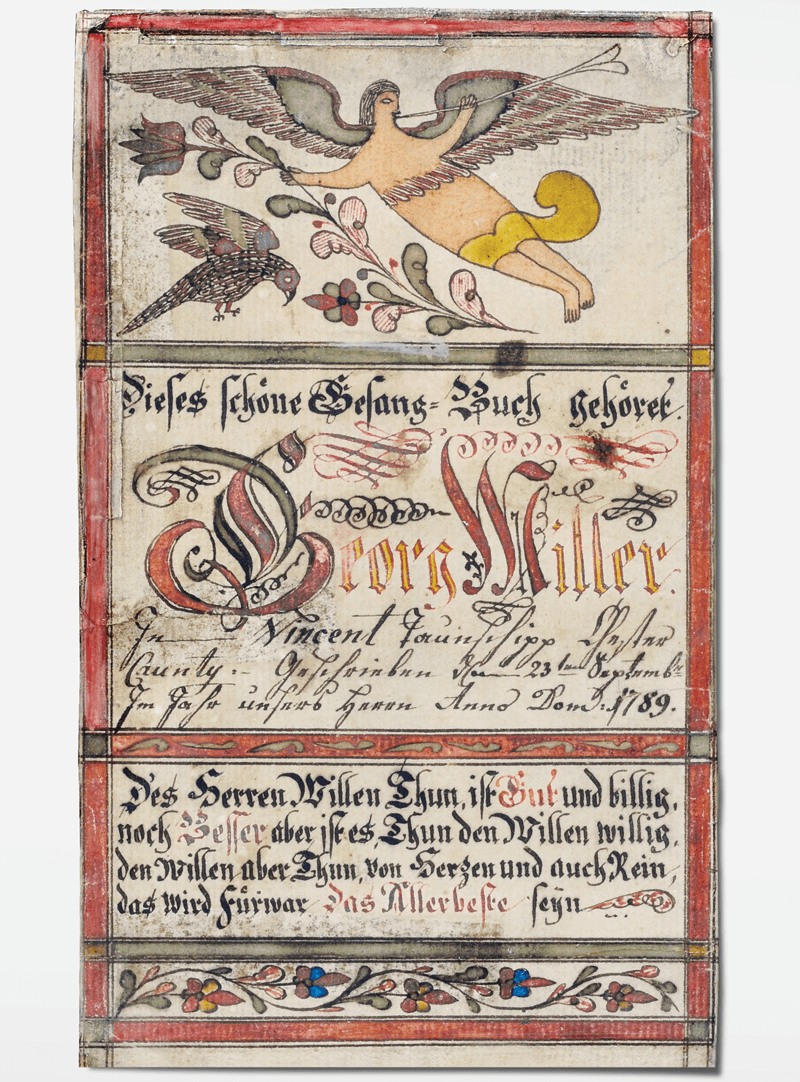 Dieses schöne Gesang-Buch gehöret.
Georg Miller.
In Vincent Taunschipp Chester
Caunty:- Geschrieben den 23ten Septembr
Im Jahr unsers Herrn Anno Dom: 1789.
Des Herren Willen Thun, ist Gut und billig,
noch Besser aber ist es, Thun den Willen willig,
den Willen aber Thun, von Herzen und auch Rein,
das wird Fürwar das Allerbeste seÿn